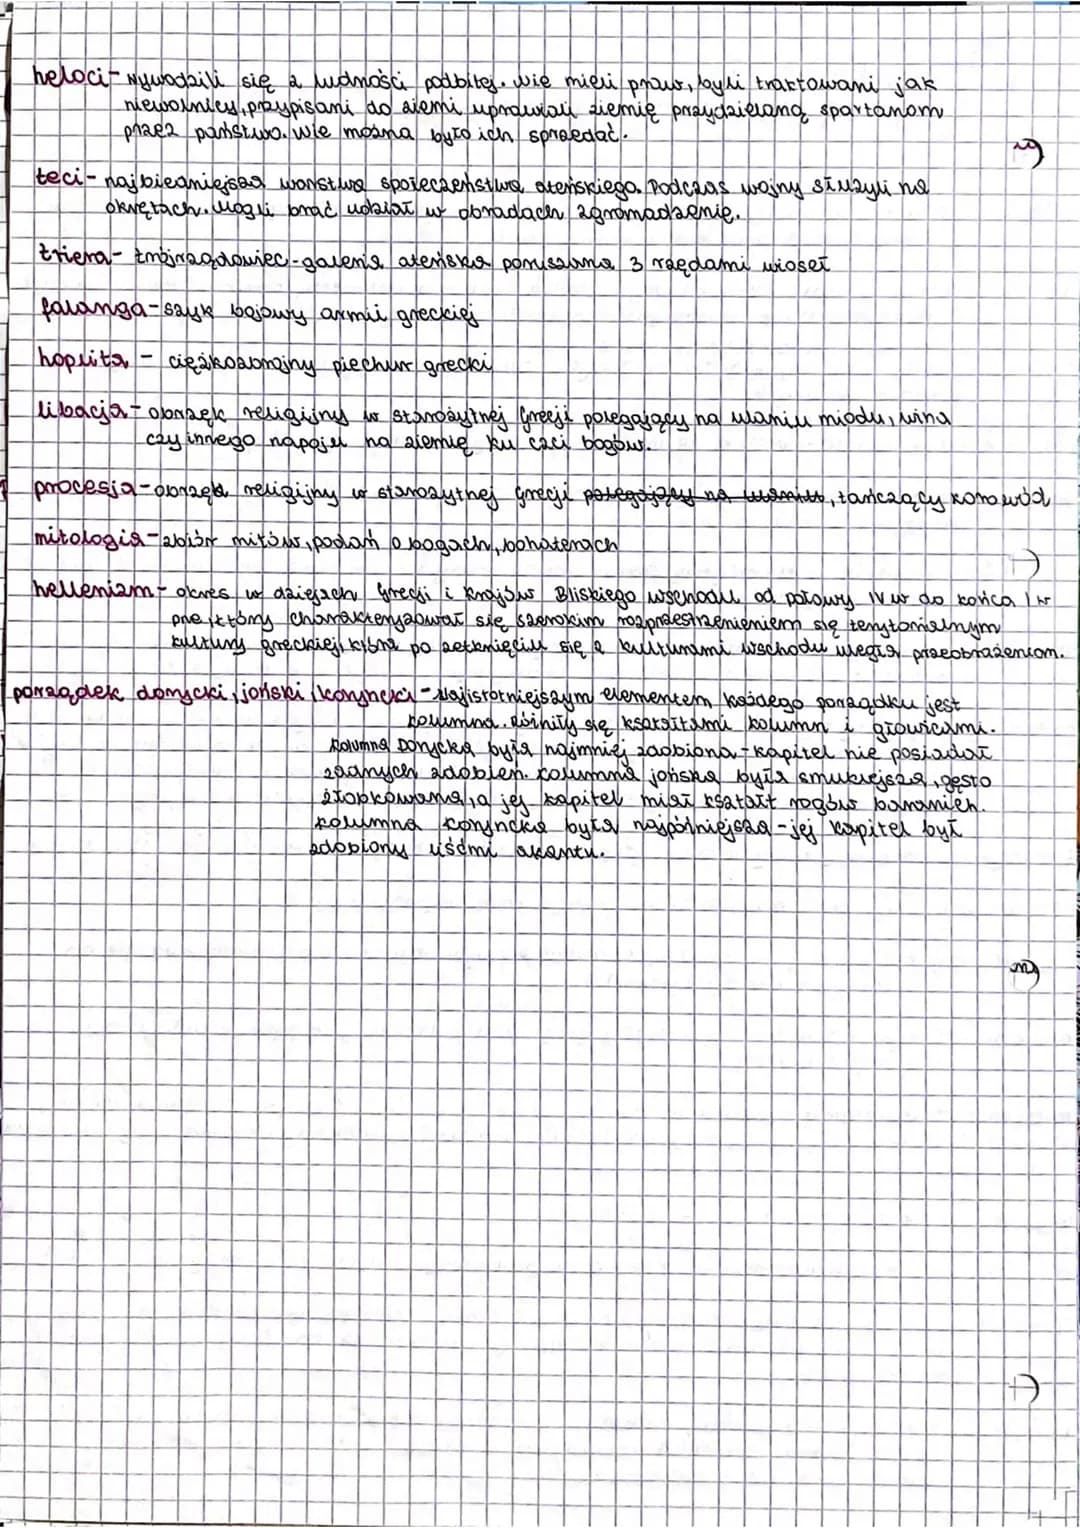 heloci - wywodzili się z ludności podbitej. Nie mieli praw, byli traktowani jak
niewolnicy, przypisani do ziemi, uprawiali ziemię przydzieloną spartanom
przez państwo. Nie można było ich sprzedać.
teci - najbiedniejsza warstwa społeczeństwa ateńskiego. Podczas wojny służyli na
okrętach. Mogli brać udział w obradach zgromadzenie.
triera - trójrzędowiec - galera ateńska poruszana 3 rzędami wioseł
falanga - szyk bojowy armii greckiej
hoplita - ciężkozbrojny piechur grecki
libacja - obrzęk religijny w starożytnej Grecji polegający na ulaniu miodu, wina
czy innego napoju na ziemię ku czci bogów.
procesja - obrzęd religijny w starożytnej Grecji polegający na ulaniu, tańczący korowód
mitologia - zbiór mitów, podań o bogach, bohaterach
hellenizm - okres w dziejach Grecji i krajów Bliskiego Wschodu od połowy IV w do końca I w
pne, który charakteryzował się szerokim rozprzestrzenieniem się terytorialnym
kultury greckiej, która po zetknięciu się z kulturami wschodu uległa przeobrażeniom.
porządek dorycki, joński, koryncki - Najistotniejszym elementem każdego porządku jest
kolumna. Różniły się kształtami kolumn i głowicami.
Kolumna Dorycka była najmniej zdobiona - kapitel nie posiadał
żadnych zdobień. Kolumna jońska była smuklejsza, gęsto
żłobkowana, a jej kapitel miał kształt rogów baranich.
Kolumna koryncka była najpóźniejsza - jej kapitel był
zdobiony liśćmi akantu.